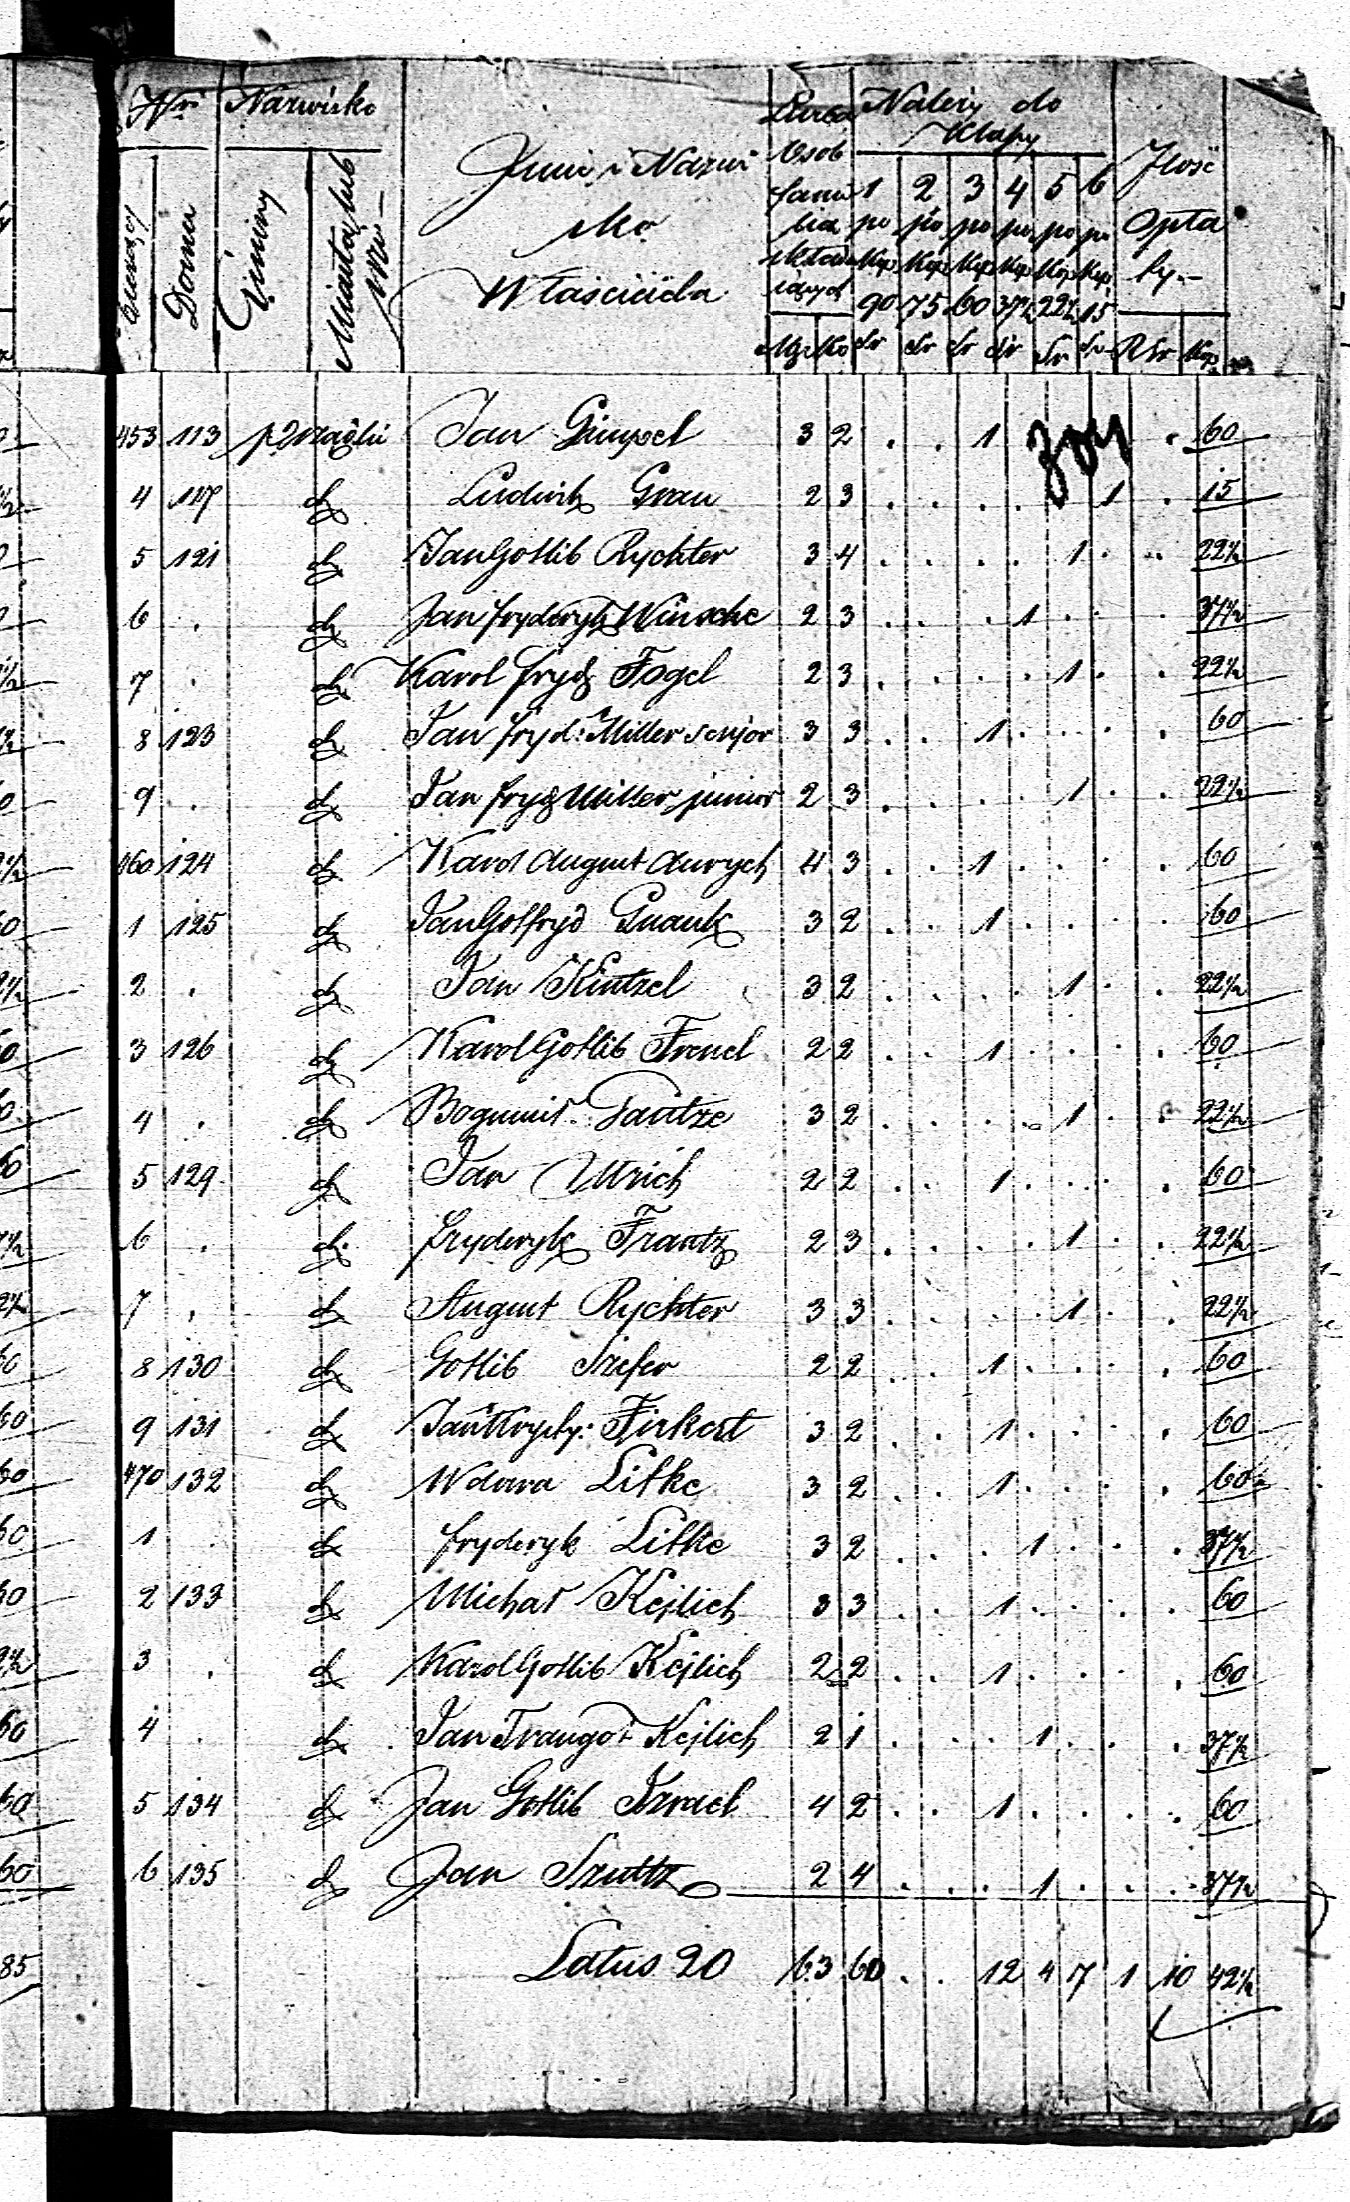 Nri Nazwisko Należy do
Klassy
Imie i Nazwi
sko
Właściciela
Osob
Ilość
Opła
ty
Domu Gminy Miasta lub
1 2 3 4 5 6
po po po po po po
Kop Kop Kop Kop Kop Kop
90 75 60 37½ 22½ 15
Sr Sr Sr Sr Sr Sr RSr Kop
453 113 Jan Gimpel 3 2 . . 1 . 60
4 117 d Ludwik Grau 2 3 . . . . 1 . 15
5 121 d Jan Gotlib Rychter 3 4 . . . . 1 . . 22½
6 . d Jan Fryderyk Winsche 2 3 . . . 1 . . . 37½
7 . d Karol Fryd Fogel 2 3 . . . . 1 . . 22½
8 123 d Jan Fryd: Miller senjor 3 3 . . 1 . . . . 60
9 . d Jan Fryd Miller junior 2 3 . . . . 1 . . 22½
460 124 d Karol August Aurych 4 3 . . 1 . . . . 60
1 125 d Jan Gotfryd Gnauk 3 2 . . 1 . . . . 60
2 . d Jan Kintzel 3 2 . . . . 1 . . 22½
3 126 d Karol Gotlib Frenel 2 2 . . 1 . . . . 60
4 . d Bogumił Gantze 3 2 . . . . 1 . . 22½
5 129 d Jan Ulrich 2 2 . . 1 . . . . 60
6 . d Fryderyk Frantz 2 3 . . . . 1 . . 22½
7 . d August Rychter 3 3 . . . . 1 . . 22½
8 130 d Gotlib Szefer 2 2 . . 1 . . . . 60
9 131 d Jan Krysty: Firkert 3 2 . . 1 . . . . 60
470 132 d Wdowa Litke 3 2 . . 1 . . . . 60
1 . d Fryderyk Litke 3 2 . . . 1 . . . 37½
2 133 d Michał Kejlich 3 3 . . 1 . . . . 60
3 . d Karol Gotlib Kejlich 2 2 . . 1 . . . . 60
4 . d Jan Traugot Kejlich 2 1 . . . 1 . . . 37½
5 134 d Jan Gotlib Izrael 4 2 . . 1 . . . . 60
6 135 d Jan Szultz 2 4 . . . 1 . . . 37½
Latus 20 63 60 . . 12 4 7 1 10 42½